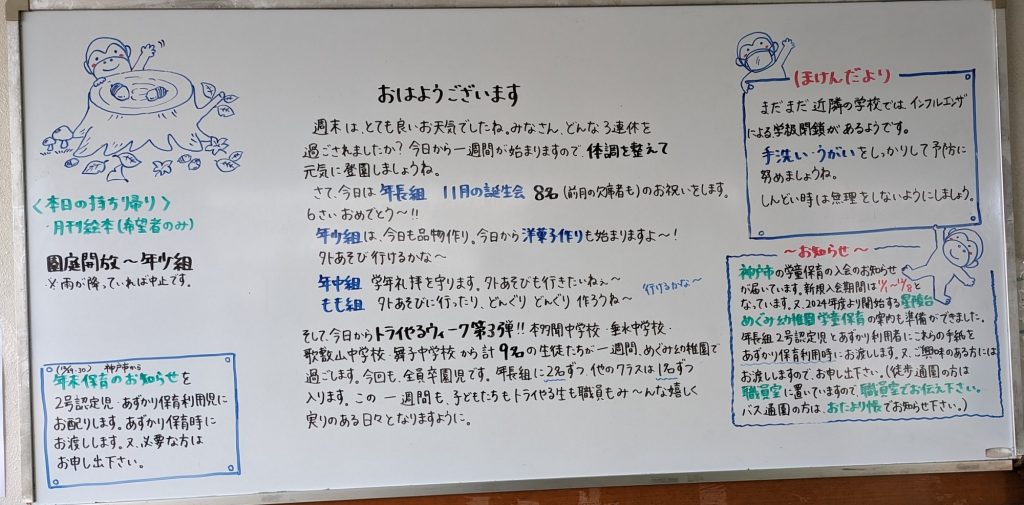 おはようございます
週末は、とても良いお天気でしたね。みなさん、どんな3連休を
過ごされましたか？今日から一週間が始まりますので、体調を整えて
元気に登園しましょうね。
さて、今日は 年長組 11月の誕生会 8名(前月の欠席者も)のお祝いをします。
6さい おめでとう〜!!
年少組は、今日も品物作り。今日から洋菓子作りも始まりますよ〜!
外あそび行けるかな〜
年中組 学年礼拝を守ります。外あそびも行きたいねぇ〜
もも組 外あそびに行ったり、どんぐり どんぐり 作ろうね〜 行けるかな〜
そして、今日からトライやるウィーク第3弾!! 本多聞中学校・垂水中学校・
歌敷山中学校・舞子中学校 から計 9名の生徒たちが一週間、めぐみ幼稚園で
過ごします。今回も、全員卒園児です。年長組に2名ずつ 他のクラスは1名ずつ
入ります。この 一週間も、子どもたちもトライやる生も職員もみ〜んな嬉しく
実りのある日々となりますように。
〈本日の持ち帰り〉
・月刊絵本(希望者のみ)
園庭開放〜年少組
※雨が降っていれば中止です。
神戸市から
年末保育のお知らせを
2号認定児・あずかり保育利用児に
お配りします。あずかり保育時に
お渡しします。又、必要な方は
お申し出下さい。
ほけんだより
まだまだ 近隣の学校では、インフルエンザ
による学級閉鎖があるようです。
手洗い・うがいをしっかりして予防に
努めましょうね。
しんどい時は無理をしないようにしましょう。
〜お知らせ〜
神戸市の学童保育の入会のお知らせ
が届いています。新規入会期間は11/1〜12/8と
なっています。又、2024年度より開始する星陵台
めぐみ幼稚園学童保育の案内も準備ができました。
年長組2号認定児とあずかり利用者にこれらの手紙を
あずかり保育利用時にお渡しします。又、ご興味のある方には
お渡ししますので、お申し出下さい。(徒歩通園の方は
職員室に置いていますので、職員室でお伝え下さい。
バス通園の方は、おたより帳でお知らせ下さい。)